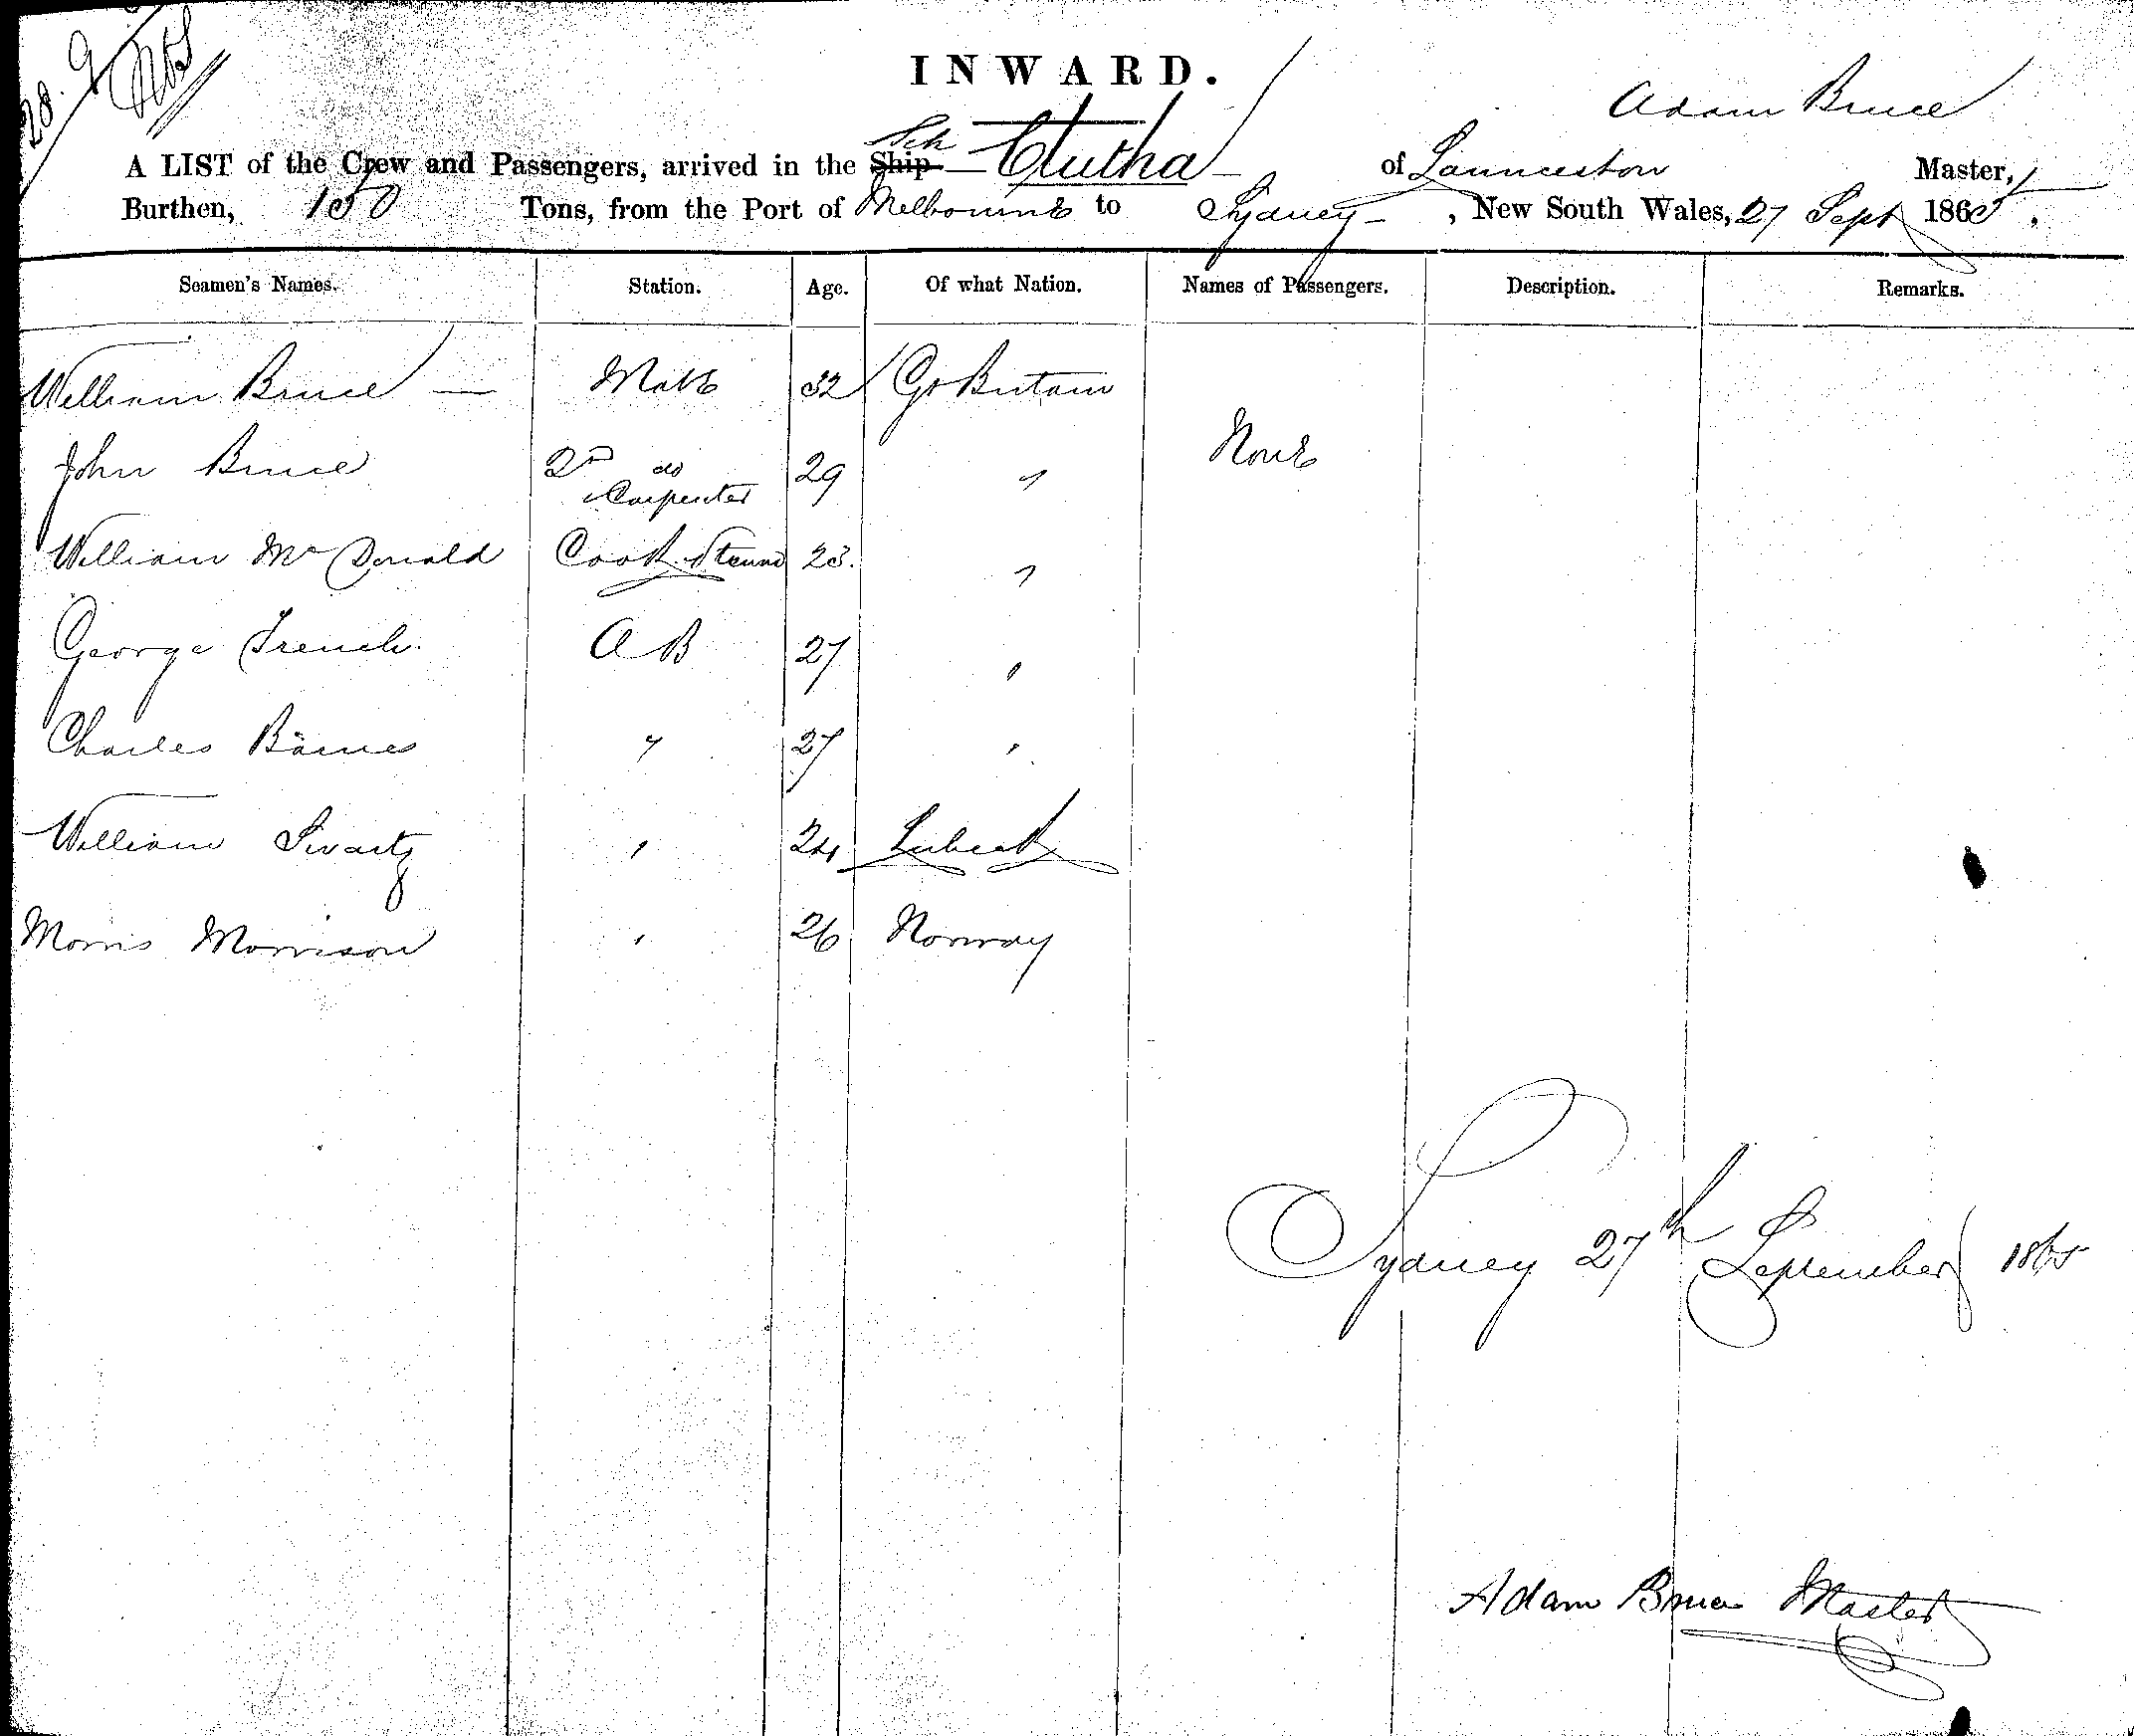 28.9
INWARD.
Adam Bruce
Sch
A LIST of the Crew and Passengers, arrived in the Ship Clutha of Launceston Master,
Burthen, 150 Tons, from the Port of Melbourne to Sydney , New South Wales, 27 Sept 1865.
Seamen's Names. Station. Age. Of what Nation. Names of Passengers. Description. Remarks.
William Bruce Mate 32 Gt Britain
John Bruce 2nd do 29 " None
& Carpenter
William Mc Donald Cook & Steward 23. "
George French AB 27 "
Charles Barnes " 27 "
William Swartz " 24 Lubeck
Morris Morrison " 26 Norway
Sydney 27th September 1865
Adam Bruce Master